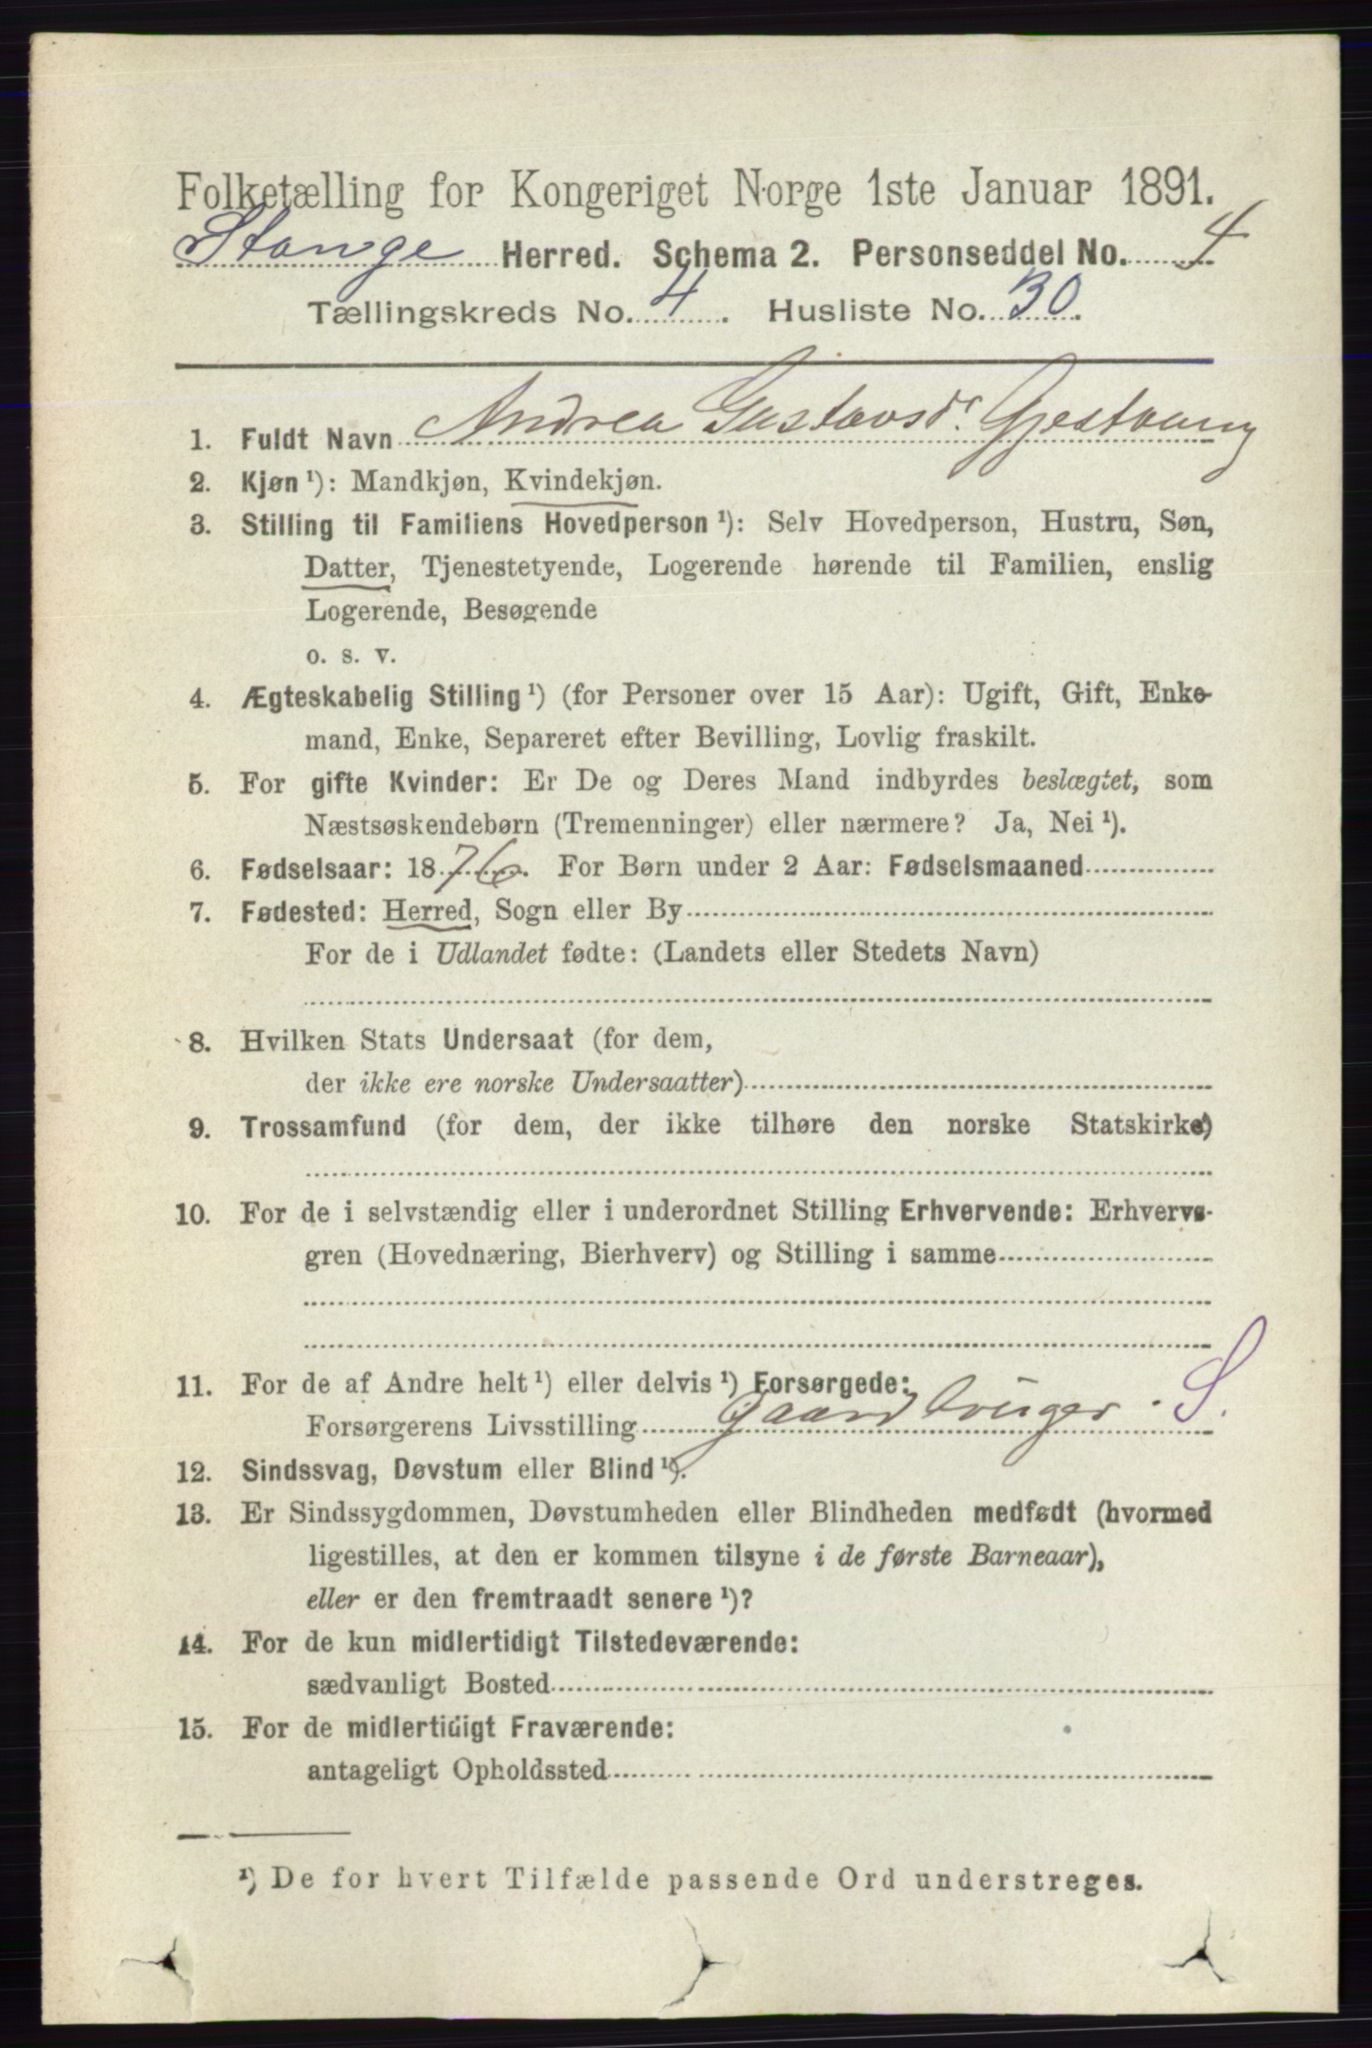 Folketælling for Kongeriget Norge 1ste Januar 1891.
Stange Herred. Schema 2. Personseddel No. 4
Tællingskreds No. 4. Husliste No. 30.
1. Fuldt Navn Andrea Gustavsdr. Gjestvang
2. Kjøn ¹): Mandkjøn, Kvindekjøn.
3. Stilling til Familiens Hovedperson ¹): Selv Hovedperson, Hustru, Søn,
Datter, Tjenestetyende, Logerende hørende til Familien, enslig
Logerende, Besøgende
o. s. v.
4. Ægteskabelig Stilling ¹) (for Personer over 15 Aar): Ugift, Gift, Enke-
mand, Enke, Separeret efter Bevilling, Lovlig fraskilt.
5. For gifte Kvinder: Er De og Deres Mand indbyrdes beslægtet, som
Næstsøskendebørn (Tremenninger) eller nærmere? Ja, Nei ¹).
6. Fødselsaar: 1876. For Børn under 2 Aar: Fødselsmaaned
7. Fødested: Herred, Sogn eller By
For de i Udlandet fødte: (Landets eller Stedets Navn)
8. Hvilken Stats Undersaat (for dem,
der ikke ere norske Undersaatter)
9. Trossamfund (for dem, der ikke tilhøre den norske Statskirke)
10. For de i selvstændig eller i underordnet Stilling Erhvervende: Erhvervs-
gren (Hovednæring, Bierhverv) og Stilling i samme
11. For de af Andre helt ¹) eller delvis ¹) Forsørgede:
Forsørgerens Livsstilling Gaardbruger. S.
12. Sindssvag, Døvstum eller Blind ¹).
13. Er Sindssygdommen, Døvstumheden eller Blindheden medfødt (hvormed
ligestilles, at den er kommen tilsyne i de første Barneaar),
eller er den fremtraadt senere ¹)?
14. For de kun midlertidigt Tilstedeværende:
sædvanligt Bosted
15. For de midlertidigt Fraværende:
antageligt Opholdssted
¹) De for hvert Tilfælde passende Ord understreges.